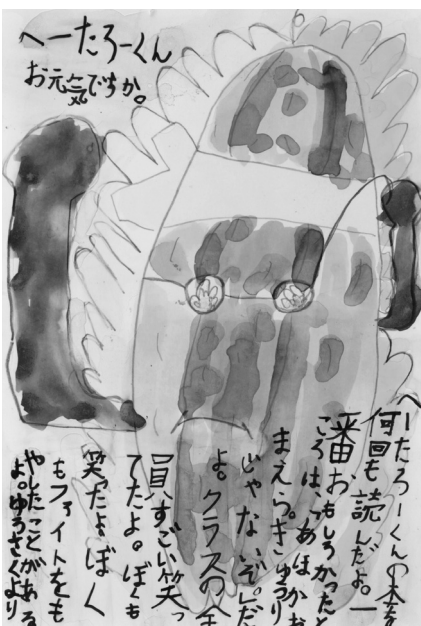 へーたろーくん
お元気ですか。
へーたろーくんの本を
何回も読んだよ。一
番おもしろかったと
ころは、「あほかお
まえら。きゅうり
じゃないぞ。」だ
よ。クラスの全
員、すごい笑っ
てたよ。ぼくも
笑ったよ。ぼく
もファイトをも
やしたことがある
よ。ゆうさくより